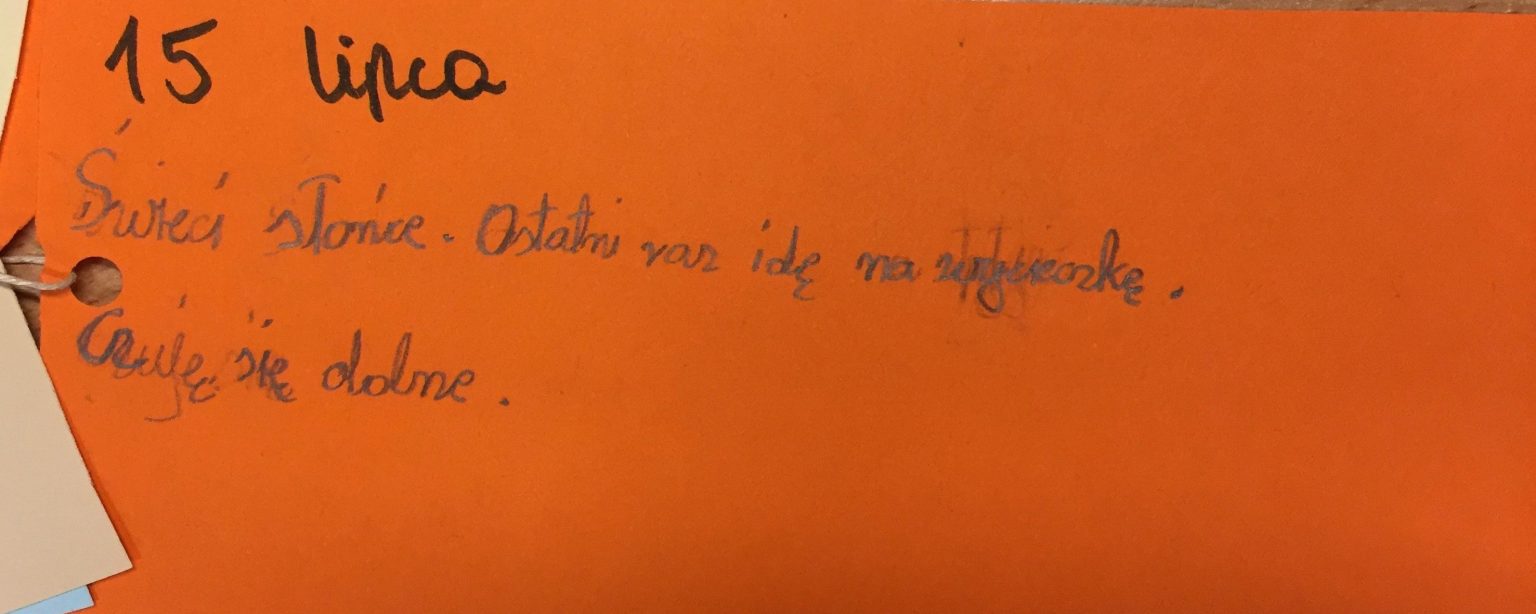 15 lipca
Świeci słońce. Ostatni raz idę na wycieczkę.
Czuję się dobrze.